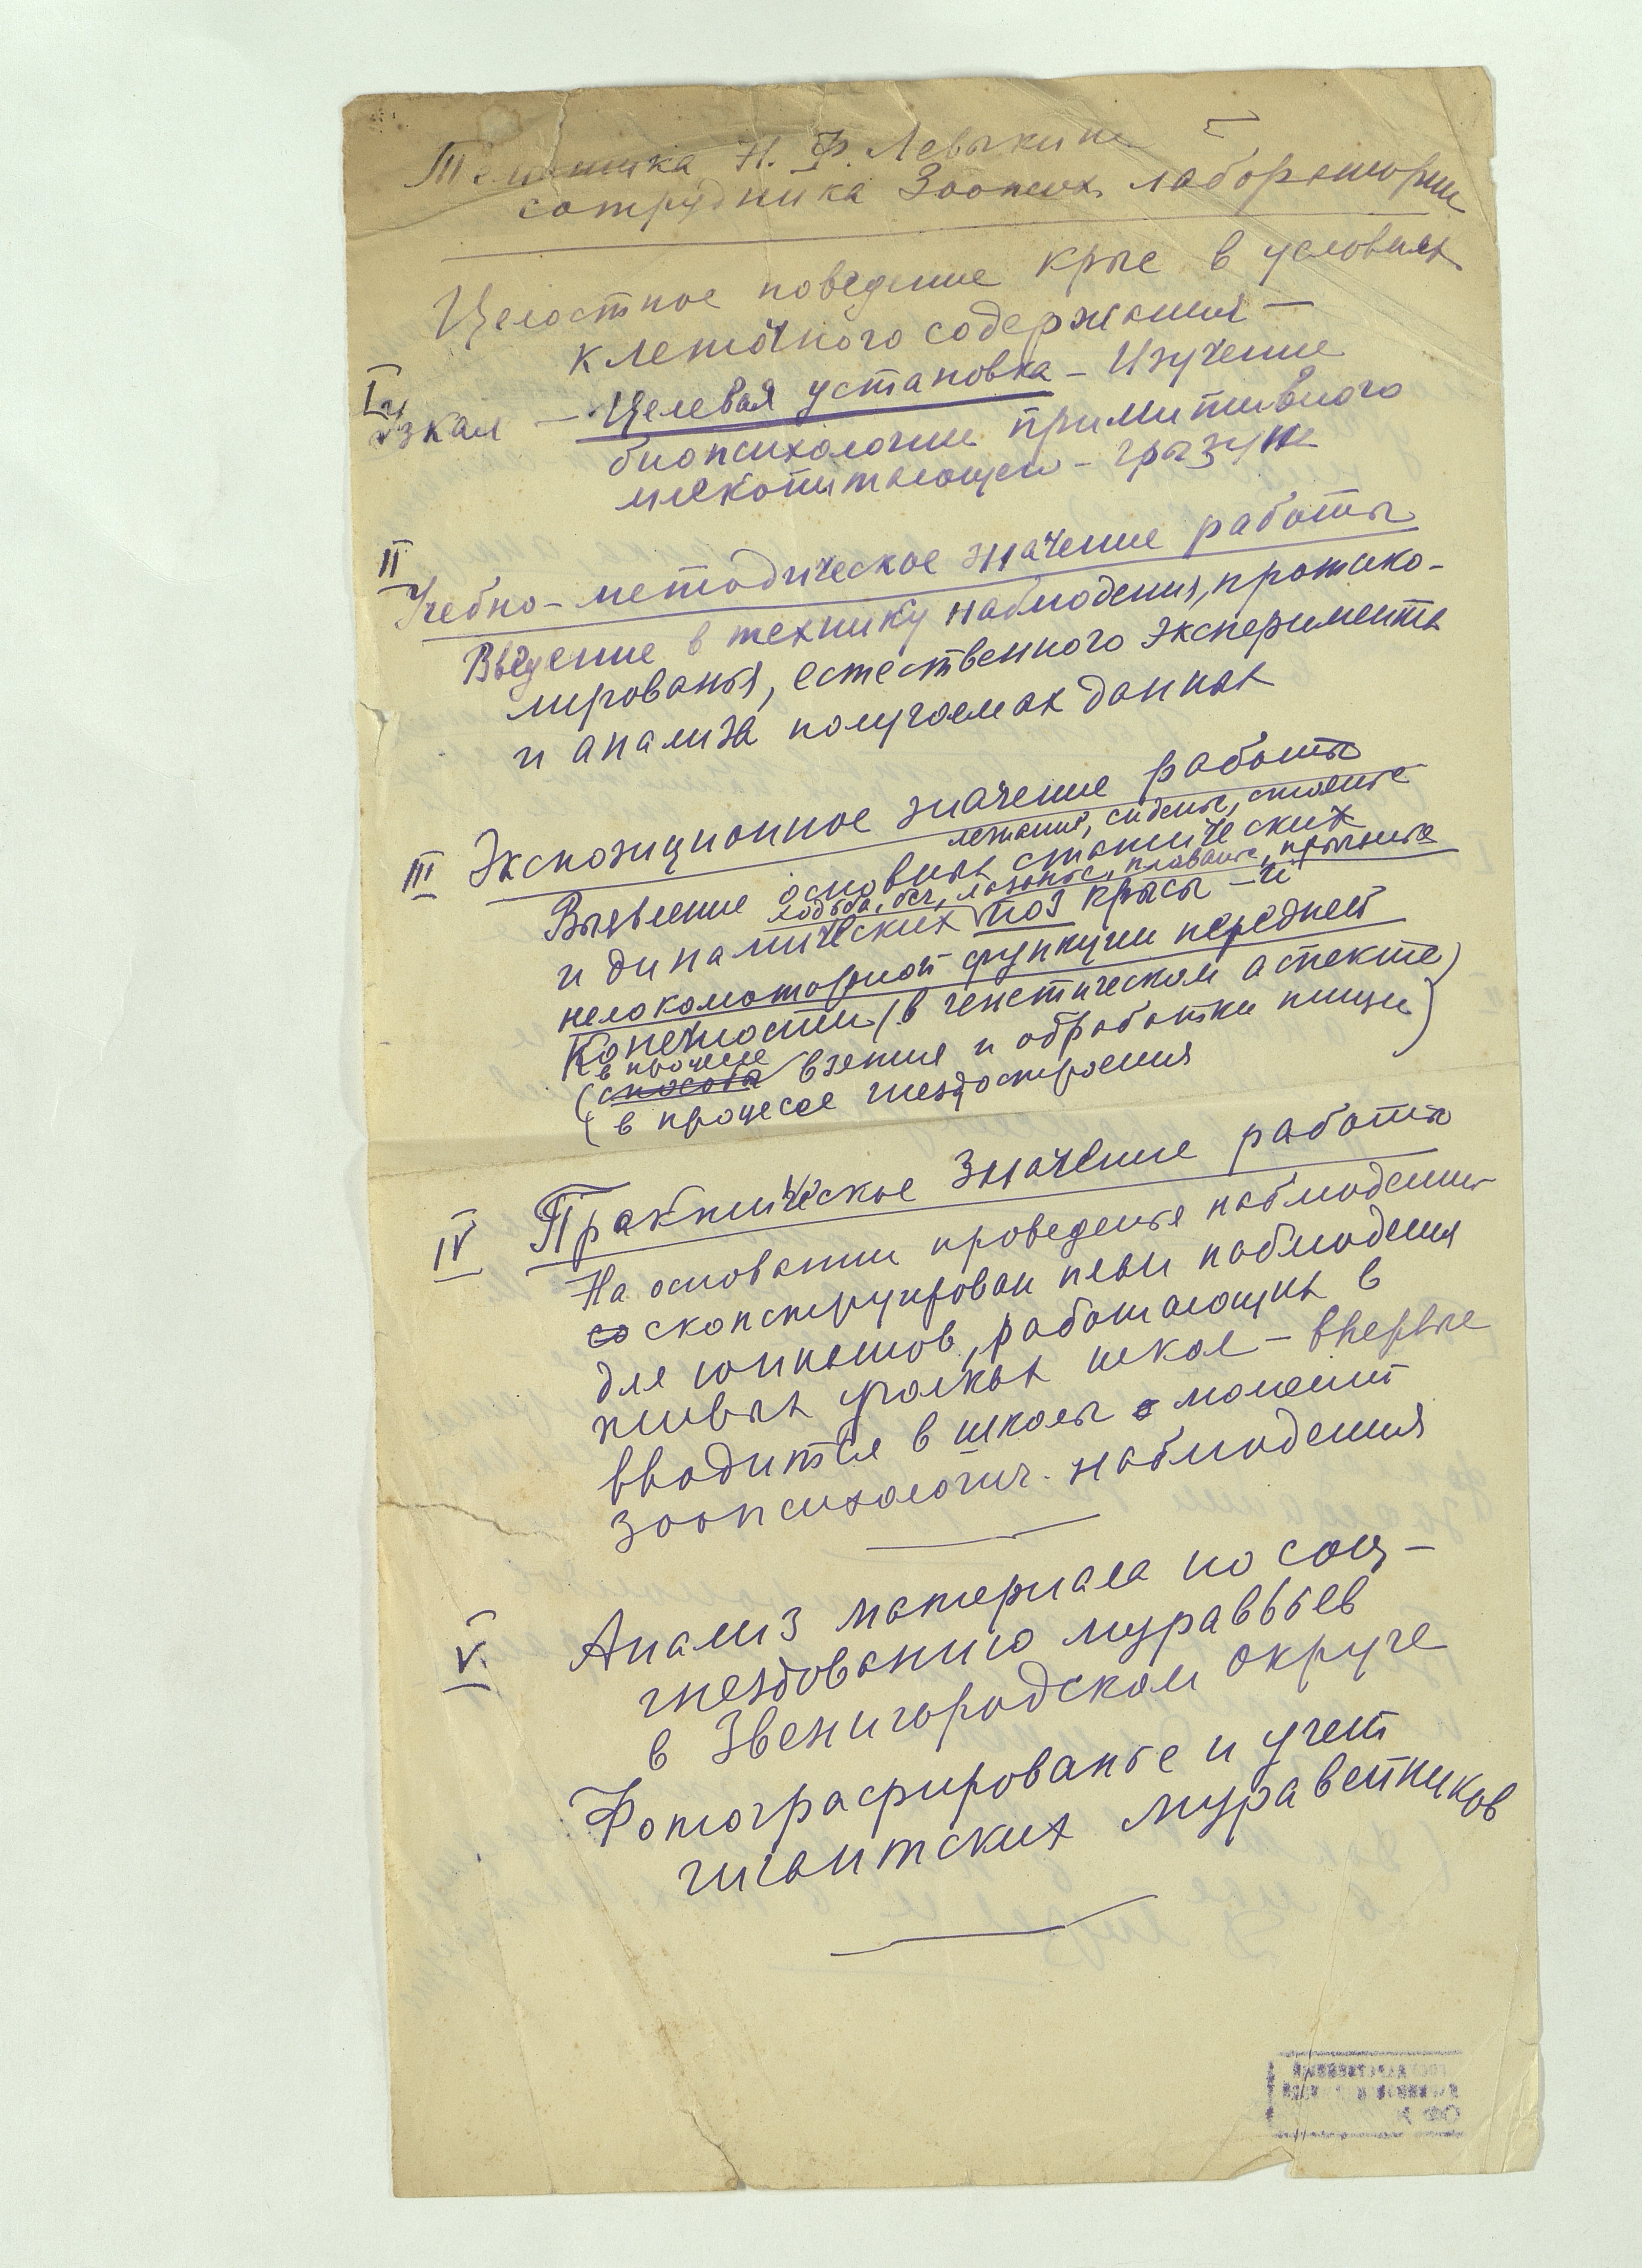 Тематика Н. Ф. Левыкиной
сотрудника Зоопсих. лаборатории
Целостное поведение крыс в условиях
клеточного содержания —
I
Узкая — Целевая установка — Изучение
биопсихологии примитивного
млекопитающего — грызуна
II
Учебно-методическое значение работы
Введение в технику наблюдения, протоко-
лированья, естественного эксперимента
и анализа получаемых данных
III Экспозиционное значение работы
лежанье, сиденье, стоянье
Выявление основных статических
ходьба, бег, лазанье, плаванье, прыганье
и динамических поз крысы — и
нелокомоторной функции передней
конечности (в генетическом аспекте)
в процессе
(способа взятия и обработки пищи)
(в процессе гнездостроения
IV Практическое значение работы
На основании проведенья наблюдения
со сконструирован план наблюдения
для юннатов, работающих в
живых уголках школ — впервые
вводится в школы момент
зоопсихологич. наблюдения
V. Анализ материала по соц-
гнездованию муравьев
в Звенигородском округе
Фотографированье и учет
гигантских муравейников
ГОСУДАРСТВЕННЫЙ